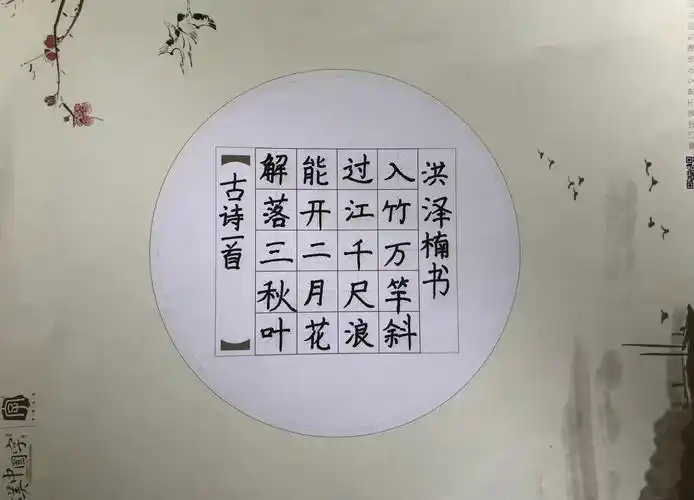 古诗一首
解落三秋叶
能开二月花
过江千尺浪
入竹万竿斜
洪泽楠书
美中國字